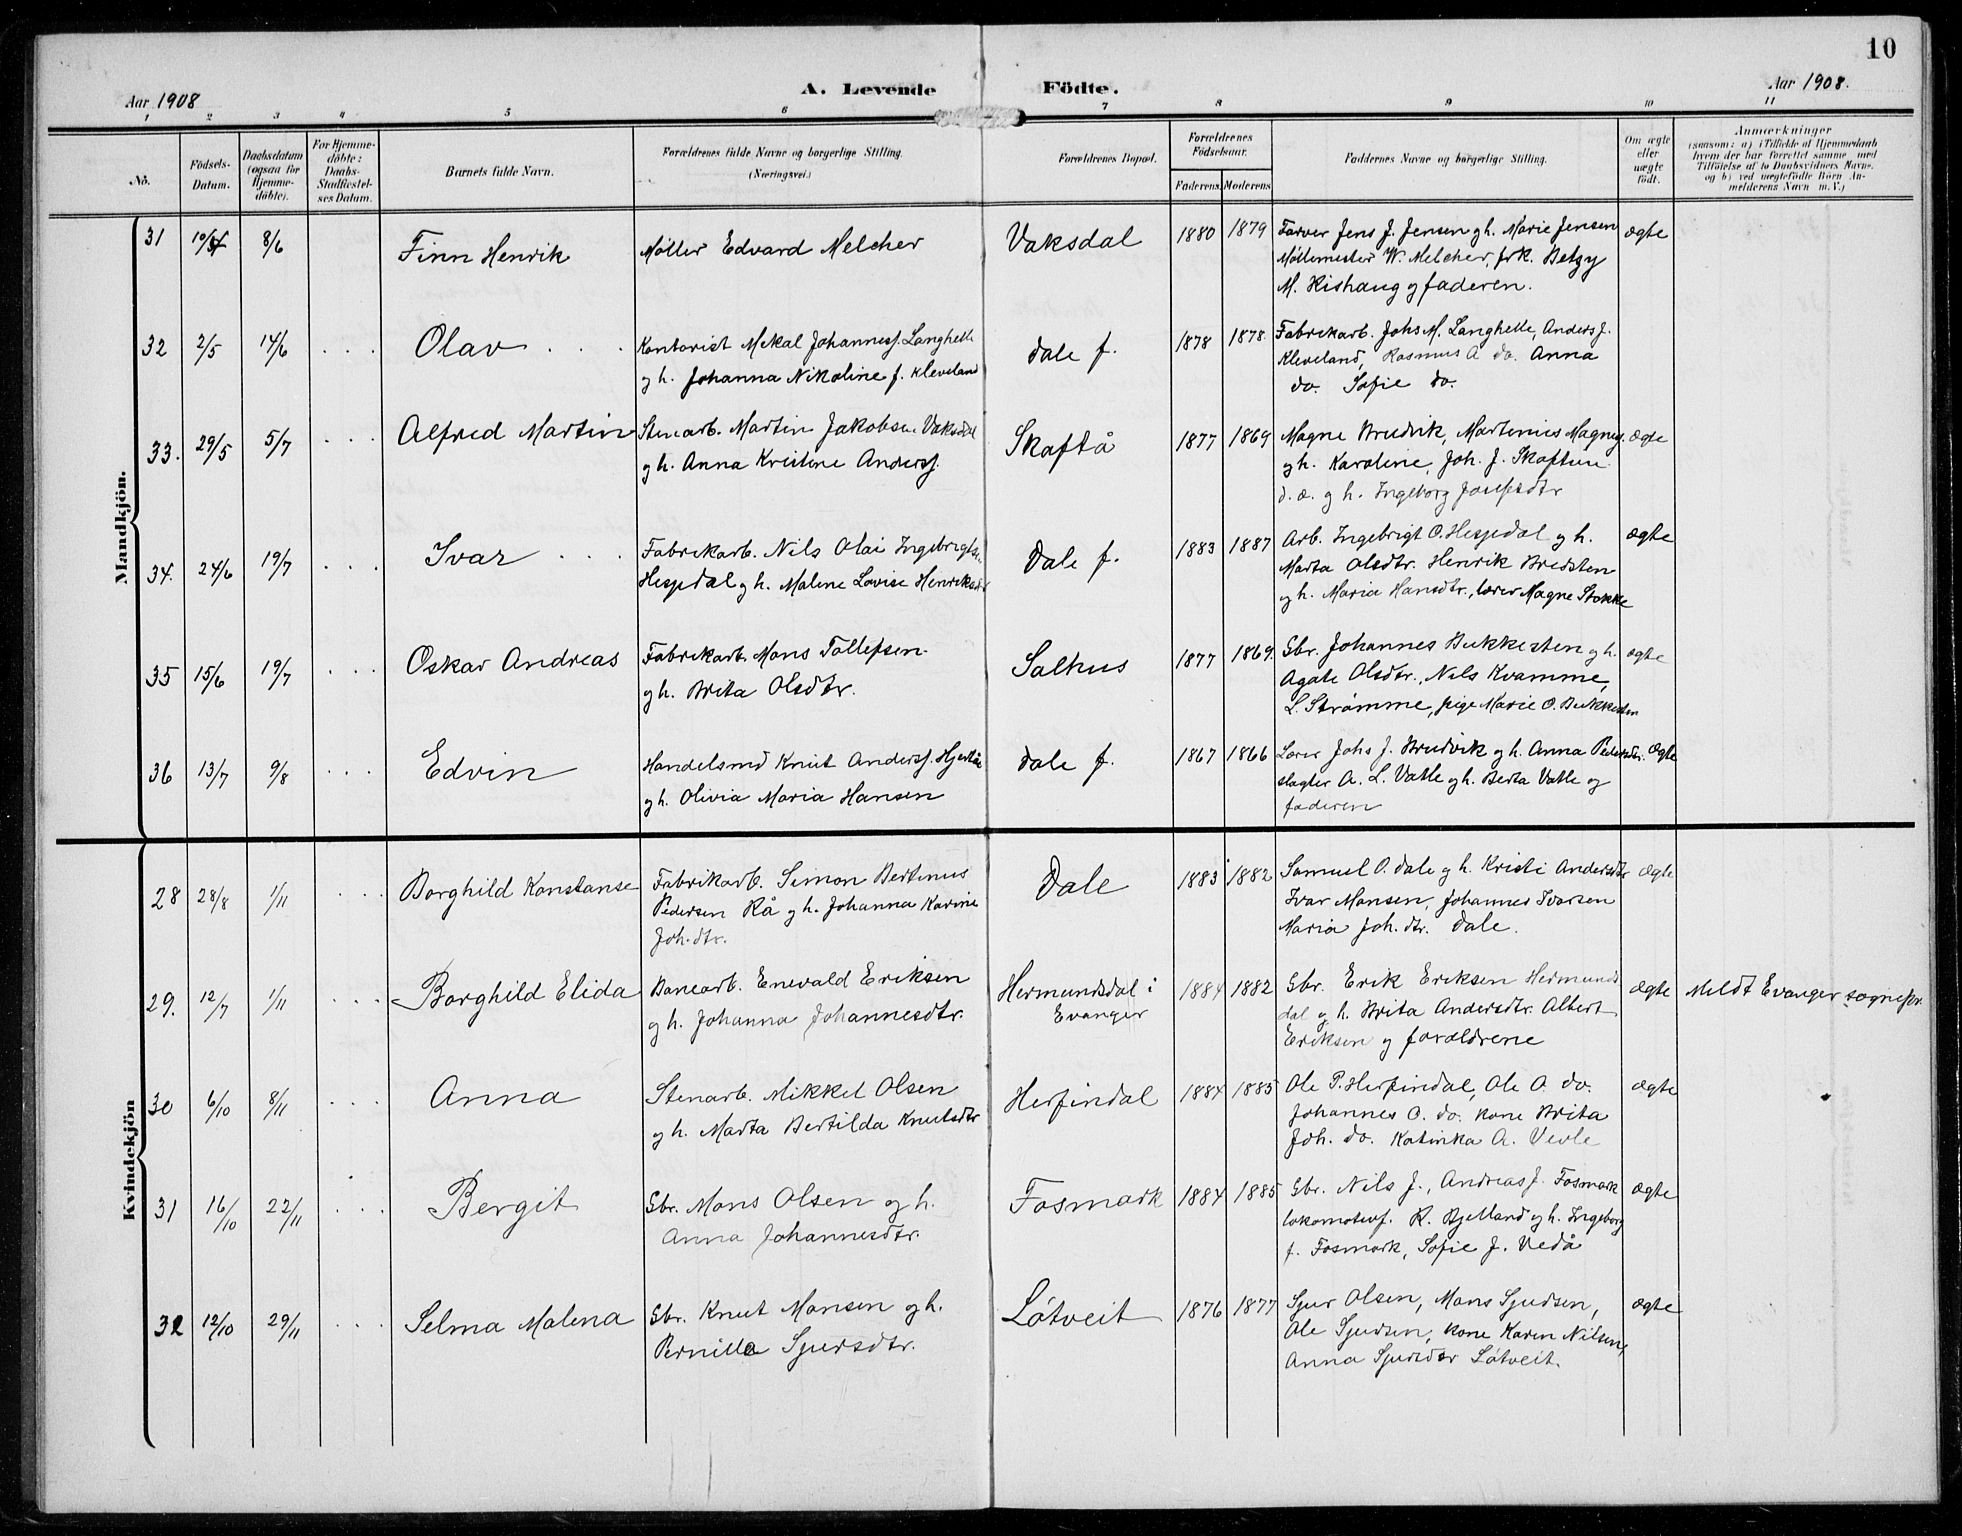 10
A. Levende Födte.
Aar 1908
Aar 1908.
1 2 3 4 5 6 7 8 9 10 11
No.
Födsels-Datum.
Daabsdatum (ogsaa for Hjemme-döbte).
For Hjemme-döbte: Daabs-Stadfæstel-ses Datum.
Barnets fulde Navn.
Forældrenes fulde Navne og borgerlige Stilling. (Næringsvei.)
Forældrenes Bopæl.
Forældrenes Födselsaar.
Faderens. Moderens
Faddernes Navne og borgerlige Stilling.
Om ægte eller uægte födt.
Anmærkninger
(saasom: a) i Tilfælde af Hjemmedaab
hvem der har forrettet samme med
Tilföielse af to Daabsvidners Navne,
og b) ved uægtefödte Börn An-
melderens Navn m. V.)
Mandkjön.
31 8/6 Finn Henrik Møller Edvard Melcher Vaksdal 1880 1879 Farver Jens J. Jensen gh. Marie Jensen ægte
Møllemester W. Melcher, frk. Betzy
M. Rishaug og faderen.
32 2/5 14/6 Olav Kontorist Mikal Johannesf. Langhelle dale f. 1878 1878. Fabrikarb. Johs M. Langhelle, Anders J.
gh. Johanna Nikoline f. Kleveland Kleveland, Rasmus A do. Anna
do. Sofie do.
33. 29/5 5/7 Alfred Martin Stenarb. Martin Jakobsen Vaksdal Skaftå 1877 1869 Magne Brudvik, Martinius Magnes. ægte
gh. Anna Kristine Andersf. gh. Karoline, Joh. J. Skaftun
d. æ. gh. Ingeborg Josefsdtr
34. 24/6 19/7 Ivar Fabrikarb. Nils Olai Ingebrigts. Dale f. 1883 1887 Arb. Ingebrigt O. Hesjedal gh. ægte
Hesjedal gh. Malene Lovise Henriksdtr Marta Olsdtr. Henrik Bredsten
gh. Maria Hansdtr., lærer Magne Stokke
35 15/6 19/7 Oskar Andreas Fabrikarb. Mons Tollefsen Salhus 1877 1869. Gbr. Johannes Bukkesten gh. ægte
gh. Brita Olsdtr. Agate Olsdtr., Nils Kvamme,
L. Strømme, pige Marie O. Bukkesten
36 13/7 9/8 Edvin Handelsmd Knut Andersf. dale f. 1867 1866 Lærer Johs J. Brudvik gh. Anna Pedersdtr. ægte
gh. Olivia Maria Hansen slagter A. L. Vatle gh. Berta Vatle og
faderen
Kvindekjön
28 28/8 1/11 Borghild Konstanse Fabrikarb. Simon Bertinus Dale 1883 1882 Samuel O. Dale gh. Kristi Andersdtr ægte
Pedersen Rå gh. Johanna Karine Ivar Monsen, Johannes Ivarsen
Joh.dtr. Maria Joh. dtr. Dale.
29. 12/7 1/11 Borghild Elida Banearb. Enevald Eriksen Hermundsdal i 1884 1882 Gbr. Erik Eriksen Hermunds ægte Meldt Evanger sognepr.
gh. Johanna Johannesdtr. Evanger dal gh. Brita Andersdtr. Albert
Eriksen og forældrene
30 6/10 8/11 Anna Stenarb. Mikkel Olsen Herfindal 1884 1885 Ole P. Herfindal, Ole O. do. ægte
gh. Marta Bertilda Knutsdtr Johannes O. do. kone Brita
Joh. do. Katinka A. Vevle
31 16/10 22/11 Bergit Gbr. Mons Olsen gh. Fosmark 1884 1885 Gbr. Nils J., Andreas J. Fosmark ægte
Anna Johannesdtr. lokomotivf. R. Bjelland gh. Ingeborg
f. Fosmark, Sofie J. Vedå
32 12/10 29/11 Selma Malena Gbr. Knut Monsen gh. Løtveit 1876 1877 Sjur Olsen, Mons Sjurdsen, ægte
Pernille Sjursdtr. Ole Sjursen, kone Karen Nilsen,
Anna Sjursdtr Løtveit.